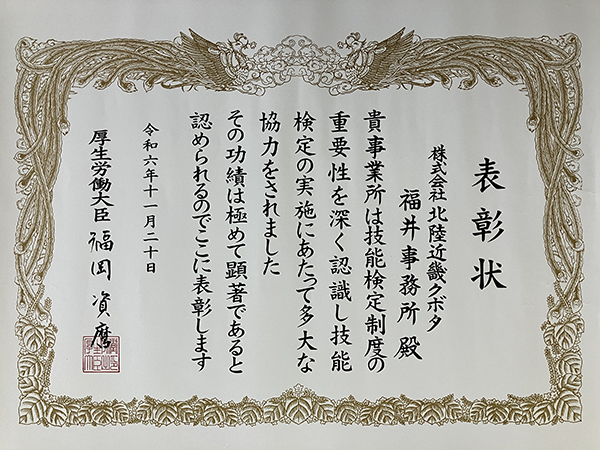 表彰状
株式会社 北陸近畿クボタ
福井事務所 殿
貴事業所は技能検定制度の
重要性を深く認識し技能
検定の実施にあたって多大な
協力をされました
その功績は極めて顕著であると
認められるのでここに表彰します
令和六年十一月二十日
厚生労働大臣 福岡資麿